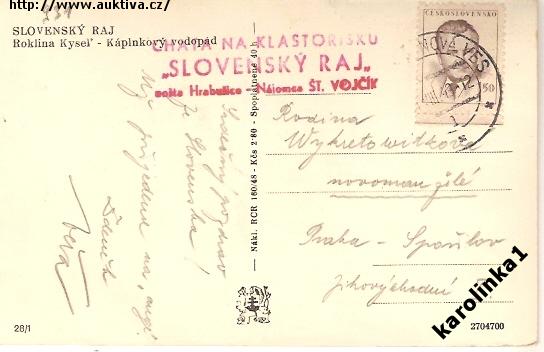 http://www.auktiva.cz/
SLOVENSKÝ RAJ
Roklina Kyseľ - Káplnkový vodopád
CHATA NA KLÁŠTORISKU
„SLOVENSKÝ RAJ"
pošta Hrabušice - Nájomca ŠT. VOJČÍK
ČESKOSLOVENSKO
OVÁ VES
Srdečný pozdrav
ze Slovenska!
My přijedeme na
Zdeněk
Věra
Nákl. RCR 160/48 - Kčs 2·80 - Spoplatnené 40 h
Rodina
novomanželé
Praha - Spořilov
Jihovýchodní
28/1
2704700
karolinka1